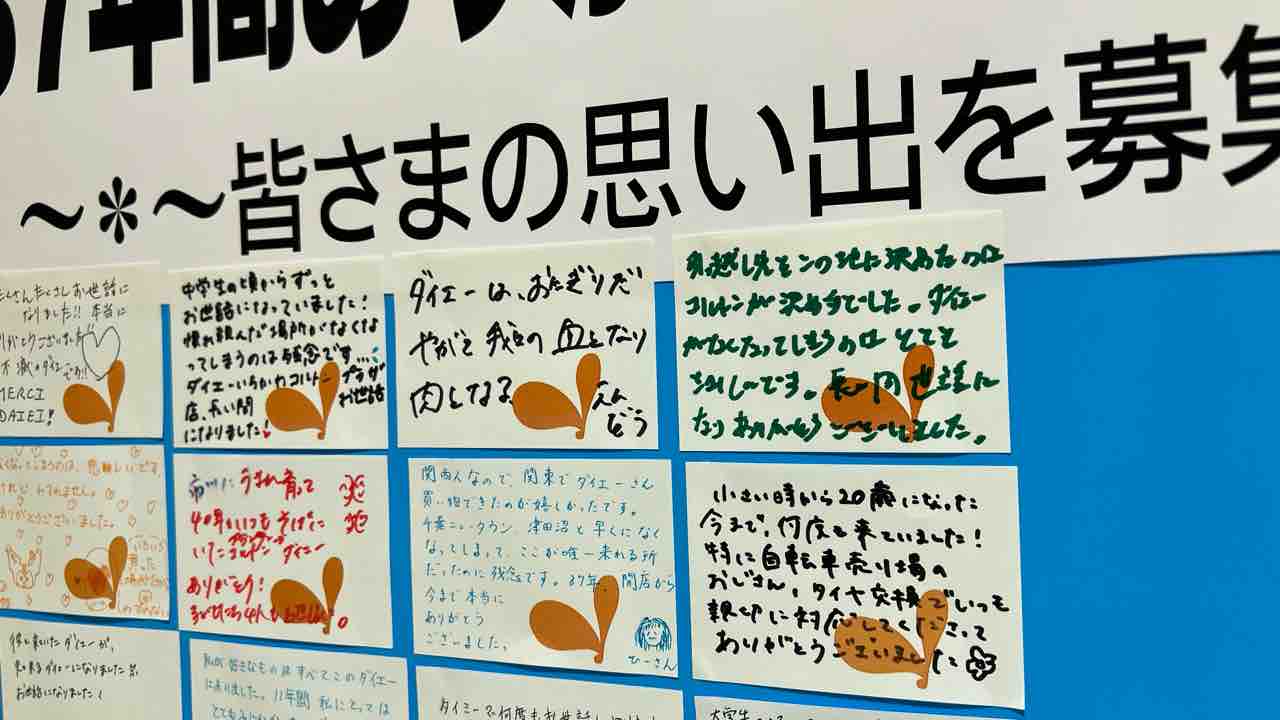 7年間あり
～*～皆さまの思い出を募集
たくさんたくさんお世話に
なりました!! 本当に
ありがとうございました
MERCI
DAIEI!
中学生の頃からずっと
お世話になっていました!
慣れ親んだ場所がなくな
ってしまうのは残念です...
ダイエーいちかわコルトンプラザ
店、長い間
お世話
になりました!
ダイエーは、おにぎりだ
やがて 我々の 血となり
肉となる
えん
どう
引越し先をこの地に決めたのは
コルトンが決め手でした。ダイエー
がなくなってしまうのは とても
さみしいです。長い間 お世話に
なり ありがとうございました。
なくなってしまうのは、悲しいです。
けれど わすれません。
ありがとうございました。
市川に うまれ育って
40年 いつも そばに
いた コルトンプラザ ダイエー
ありがとう!
関西人なので、関東でダイエーさん
買い物できたのが嬉しかったです。
千葉ニュータウン、津田沼と早くになく
なってしまって、ここが唯一来れる所
だったのに残念です。37年、開店から
今まで本当に
ありがとう
ございました。
ひーさん
小さい時から20歳になった
今まで、何度も来ていました!
特に自転車売り場の
おじさん、タイヤ交換でいつも
親切に対応してくださって
ありがとうございました
ダイエーが、
ダイエーになりました。
お世話になりました!
私の好きなものは すべてこのダイエー
にありました。11年間 私にとっては